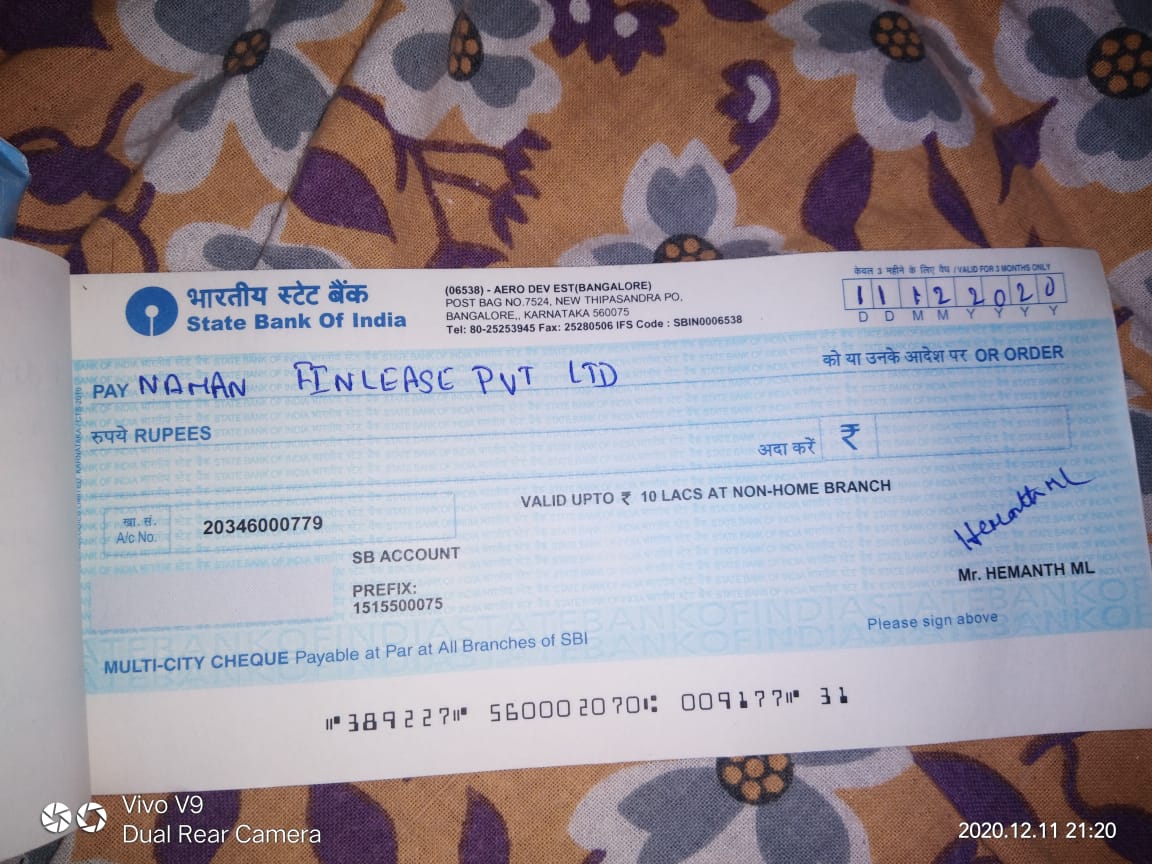 भारतीय स्टेट बैंक
State Bank Of India
(06538) - AERO DEV EST(BANGALORE)
POST BAG NO.7524, NEW THIPASANDRA PO,
BANGALORE,, KARNATAKA 560075
Tel: 80-25253945 Fax: 25280506 IFS Code : SBIN0006538
केवल 3 महीने के लिए वैध / VALID FOR 3 MONTHS ONLY
11122020
D D M M Y Y Y Y
PAY NAMAN FINLEASE PVT LTD
को या उनके आदेश पर OR ORDER
रुपये RUPEES
अदा करें ₹
VALID UPTO ₹ 10 LACS AT NON-HOME BRANCH
खा. सं.
A/c No.
20346000779
SB ACCOUNT
PREFIX:
1515500075
Hemanth ML
Mr. HEMANTH ML
Please sign above
MULTI-CITY CHEQUE Payable at Par at All Branches of SBI
⑈389227⑈ 560002070⑆ 009177⑈ 31
Vivo V9
Dual Rear Camera
2020.12.11 21:20